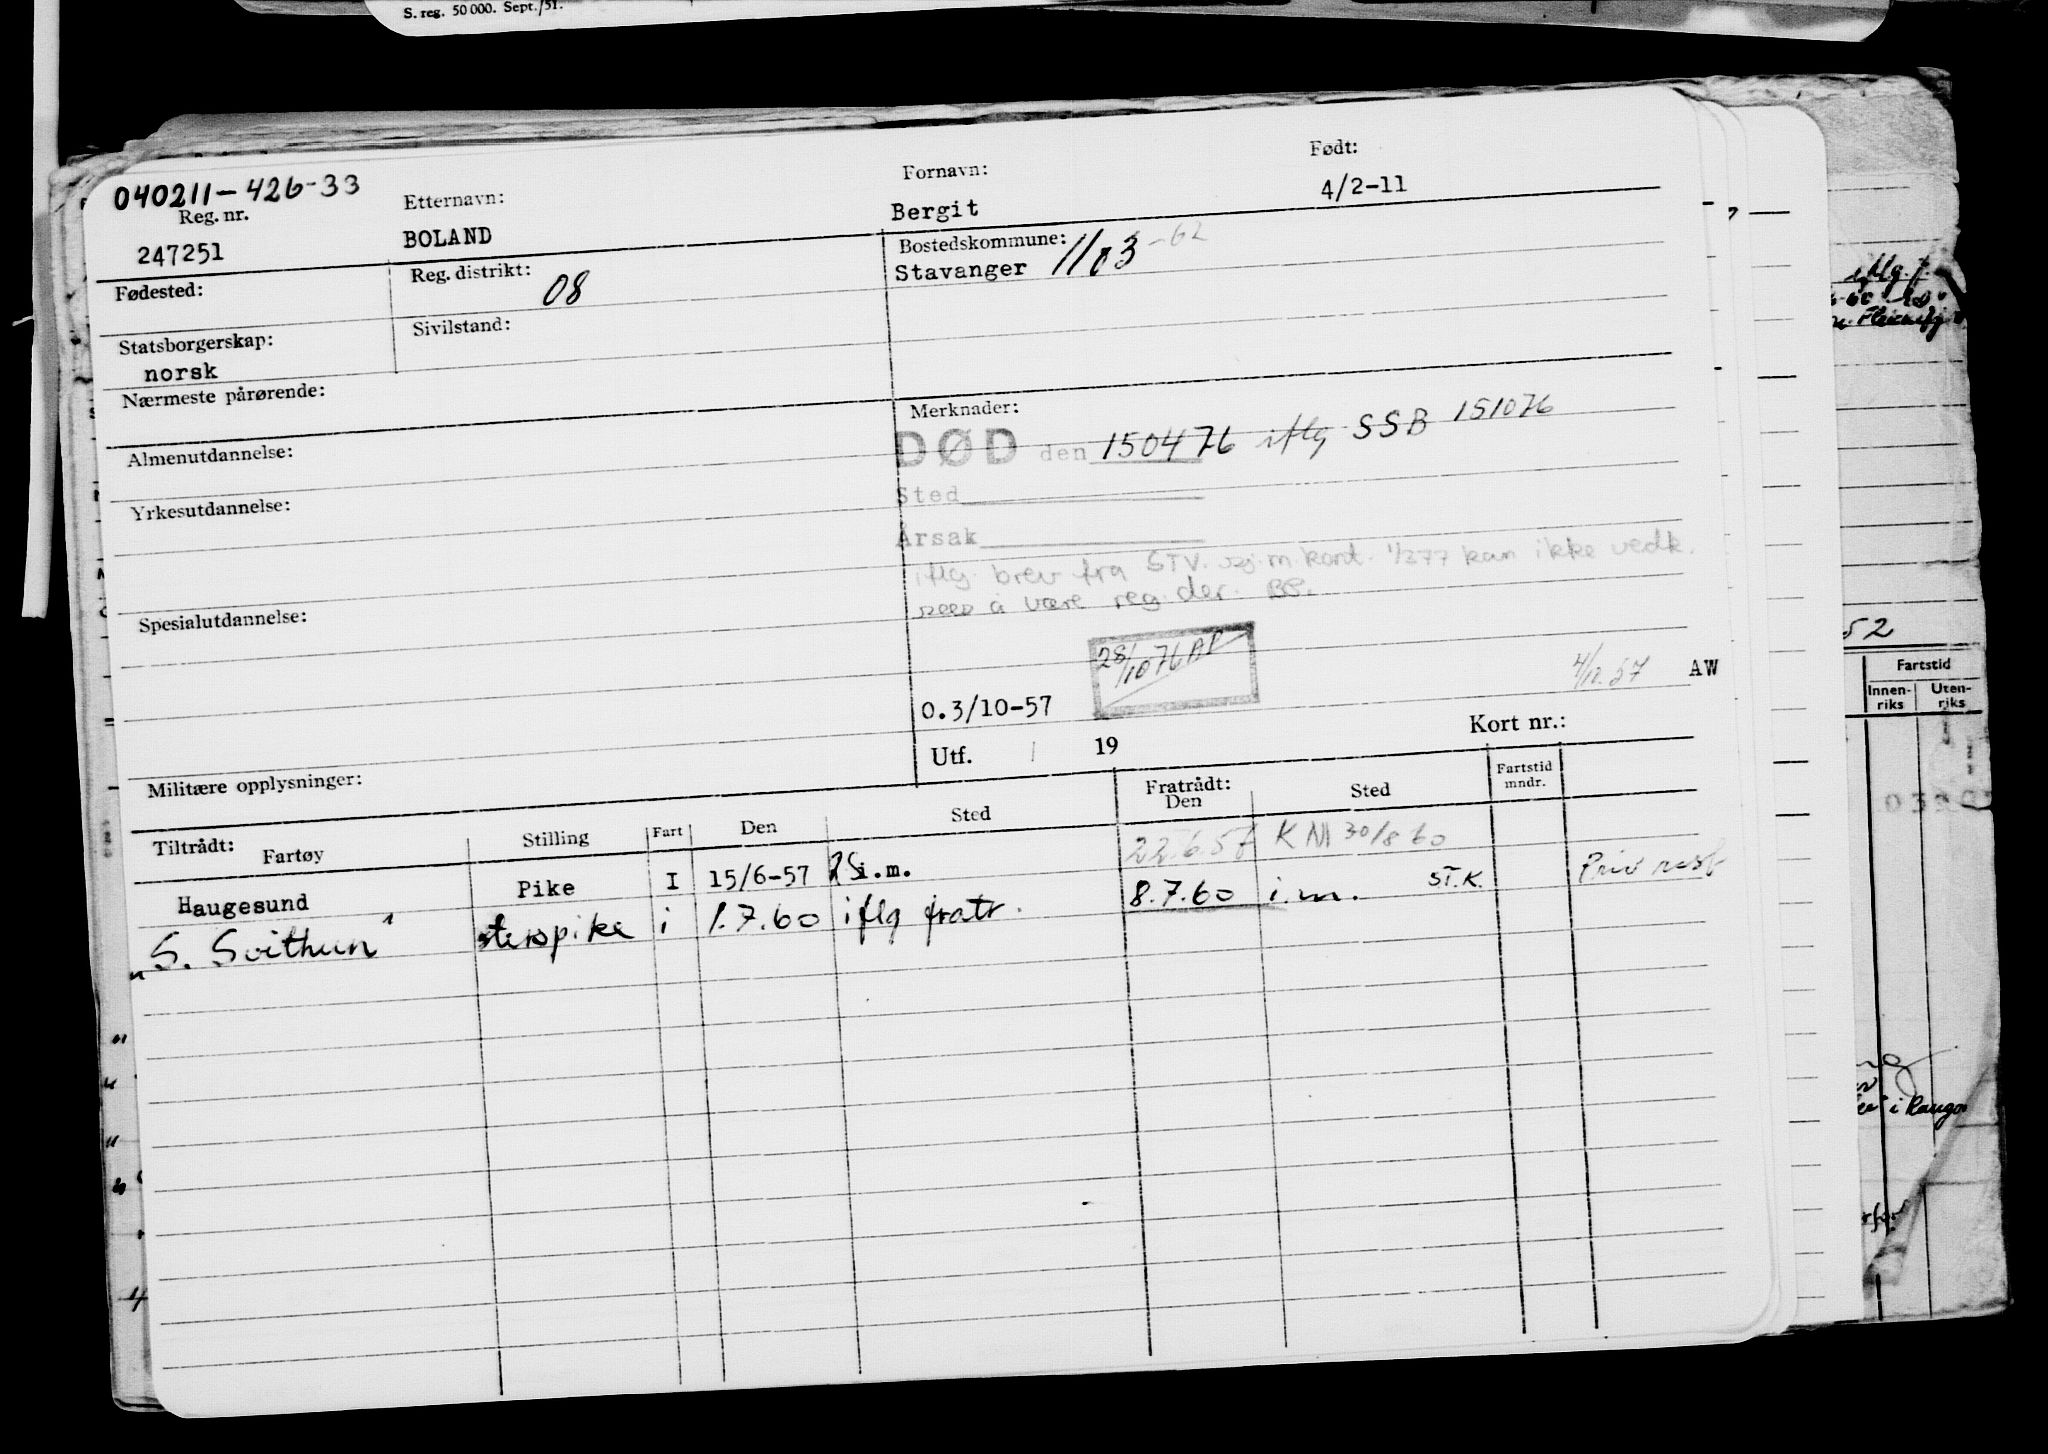 S. reg. 50 000. Sept./51.
040211-426-33
Reg. nr.
247251
Etternavn:
BOLAND
Fornavn:
Bergit
Født:
4/2-11
Fødested:
Reg. distrikt:
08
Bostedskommune:
Stavanger 1103 -62
Statsborgerskap:
norsk
Sivilstand:
Nærmeste pårørende:
Merknader:
DØD den 150476 iflg SSB 151076
Almenutdannelse:
Sted
Yrkesutdannelse:
Årsak
iflg. brev fra STV. sj.m.kont. 1/377 kan ikke vedk.
sees å være reg. der. BS.
Spesialutdannelse:
28/1076 AP
4/11.57 AW
0.3/10-57
Utf. / 19
Kort nr.:
Militære opplysninger:
Tiltrådt:
Fartøy Stilling Fart Den Sted
Fratrådt:
Den Sted Fartstid
mndr.
Haugesund Pike I 15/6-57 i.m. 22.6.57 KM 30/8 60
"S. Svithun" i 1.7.60 iflg fratr. 8.7.60 i.m. ST.K. Priv
52
Fartstid
Innen-
riks
Uten-
riks